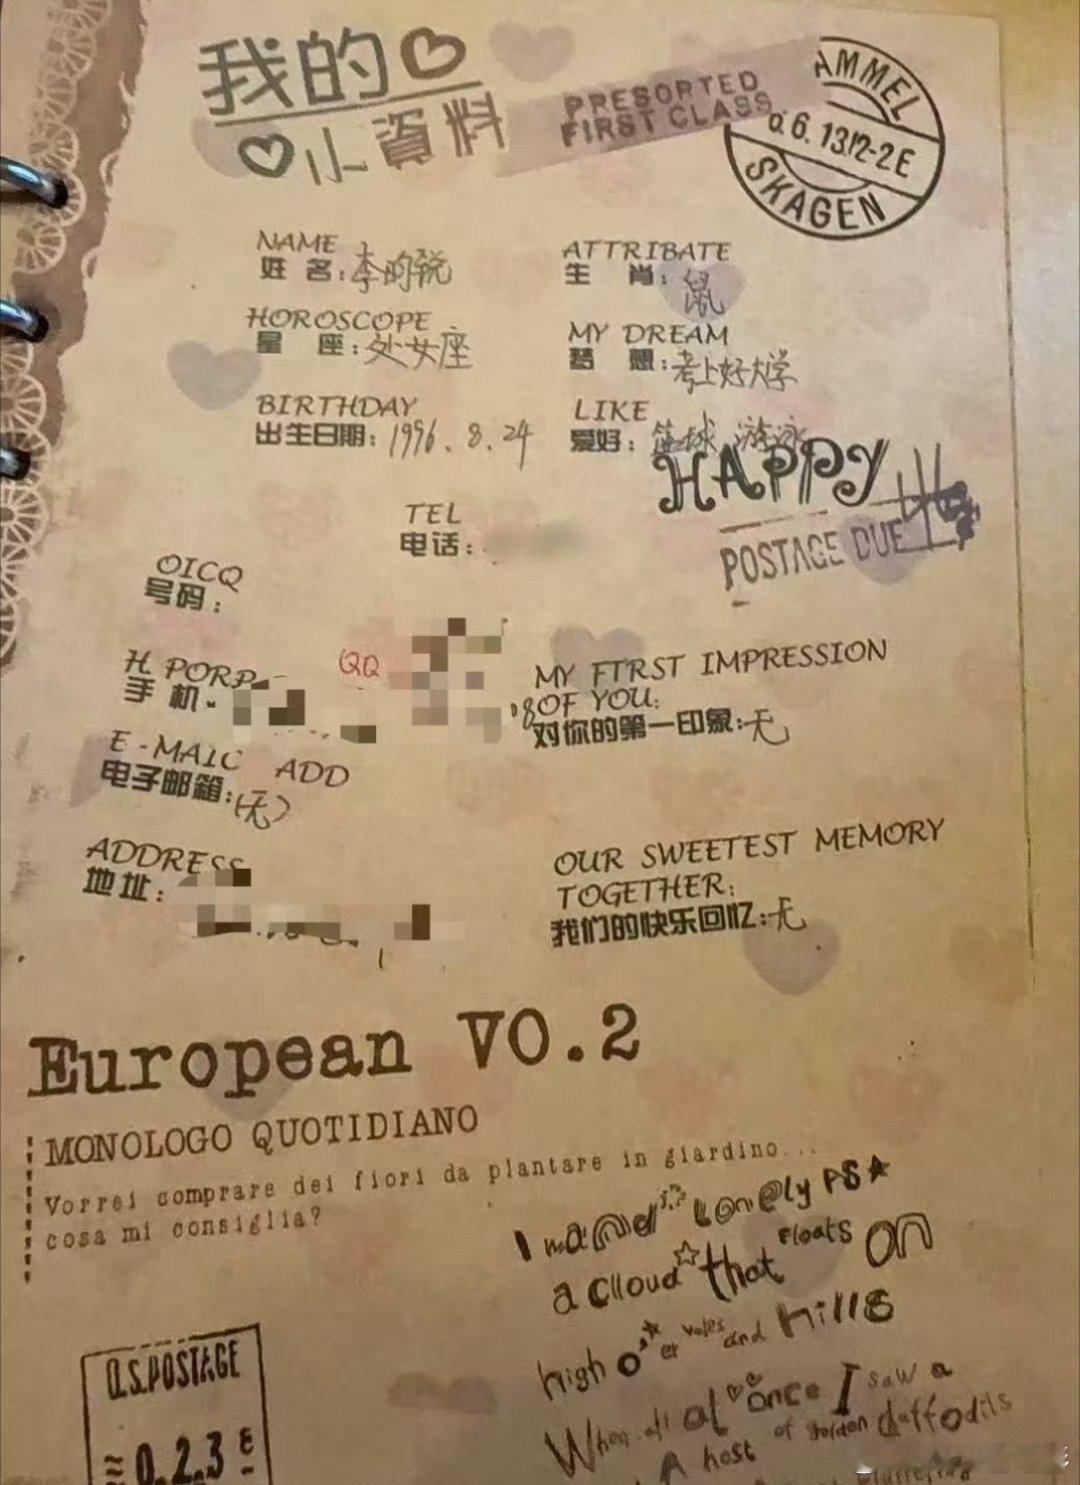 我的
小資料
PRESORTED
FIRST CLASS
AMMEL
6.13.12-2E
SKAGEN
NAME
姓 名：李昀锐
ATTRIBATE
生 肖：鼠
HOROSCOPE
星 座：处女座
MY DREAM
梦 想：考上好大学
BIRTHDAY
出生日期：1996.8.24
LIKE
爱好：篮球 游泳
HAPPY
POSTAGE DUE
TEL
电话：
OICQ
号码：
QQ
H PORP
手 机
MY FTRST IMPRESSION
OF YOU:
对你的第一印象：无
E-MAIC ADD
电子邮箱：(无)
ADDRESS
地址：
OUR SWEETEST MEMORY
TOGETHER:
我们的快乐回忆：无
European VO.2
MONOLOGO QUOTIDIANO
Vorrei comprare dei fiori da plantare in giardino...
cosa mi consiglia?
I wand Lonely PS
a clloud that floats on
high o'er vales and hills
When all at once I saw a
A host of golden daffodils
U.S.POSTAGE
0.2.3